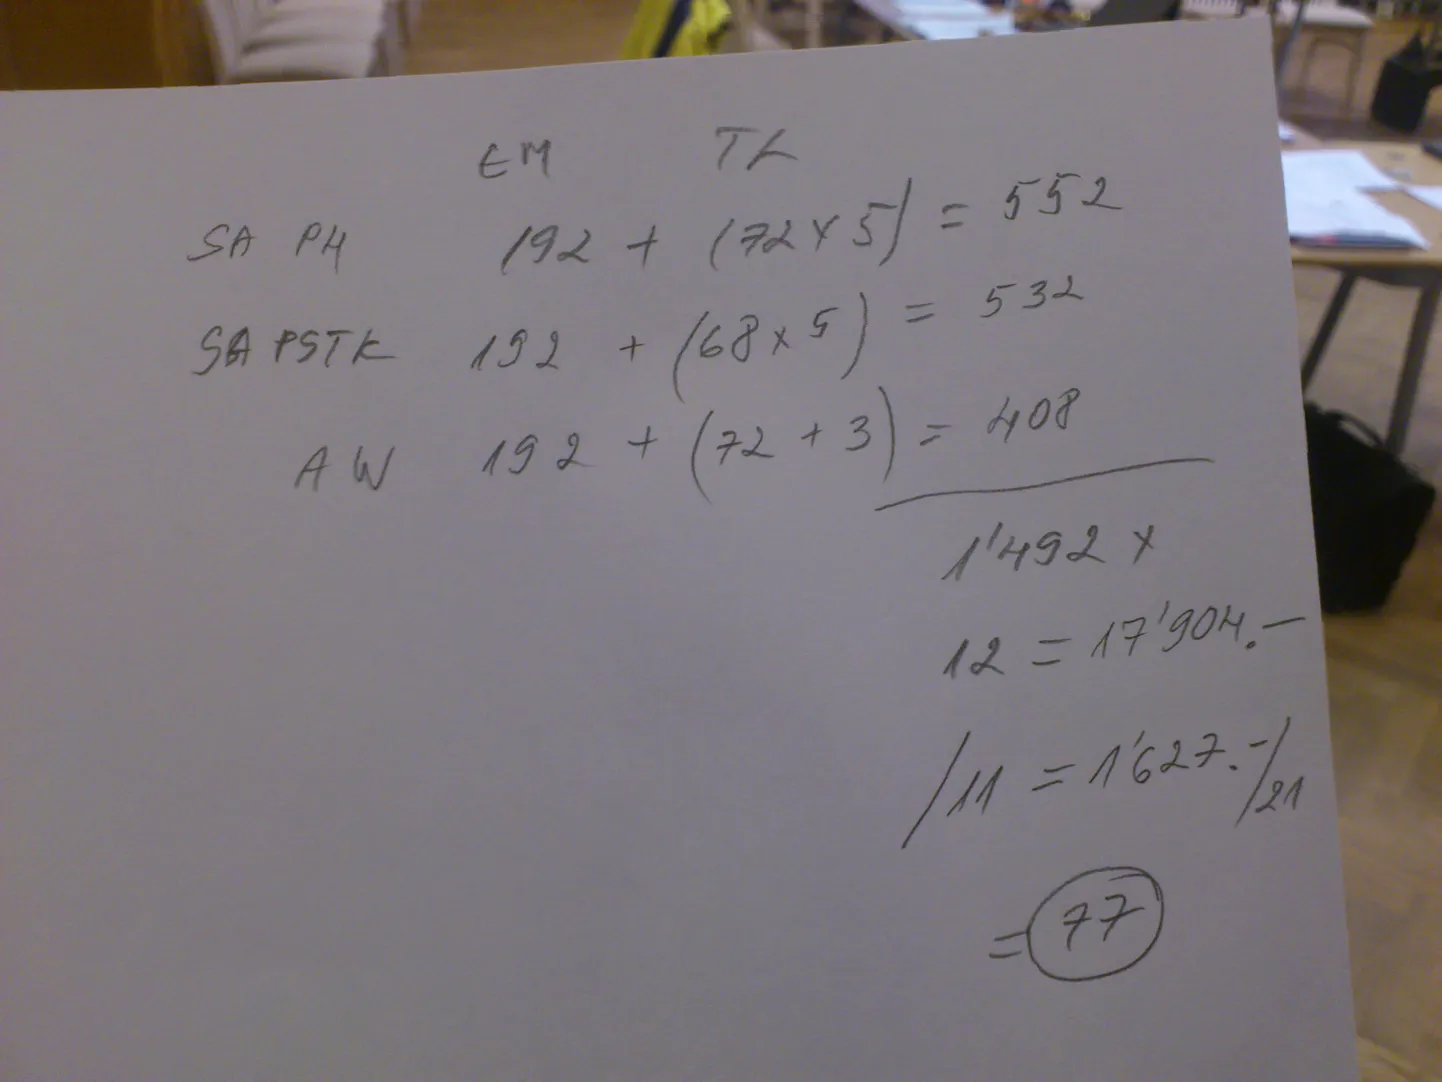 EM TL
SA PH 192 + (72 x 5) = 552
SA PSTK 192 + (68 x 5) = 532
AW 192 + (72 + 3) = 408
1'492 x
12 = 17'904.—
/11 = 1'627.-/21
= 77